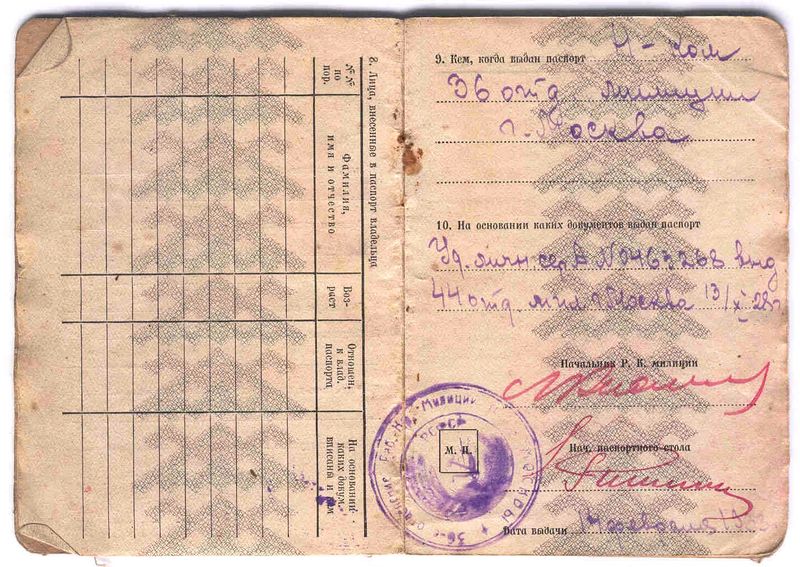 8. Лица, внесенные в паспорт владельца
№№ по пор.
Фамилия, имя и отчество
Возраст
Отношен. к влад. паспорта
На основании каких докум. вписаны и
9. Кем, когда выдан паспорт
36 отд милиции
г. Москва
10. На основании каких документов выдан паспорт
Уд. личн сер А № 0463268 выд
44 отд. мил г Москва 13/XI 28г
Начальник Р. К. милиции
Нач. паспортного стола
М. П.
Дата выдачи